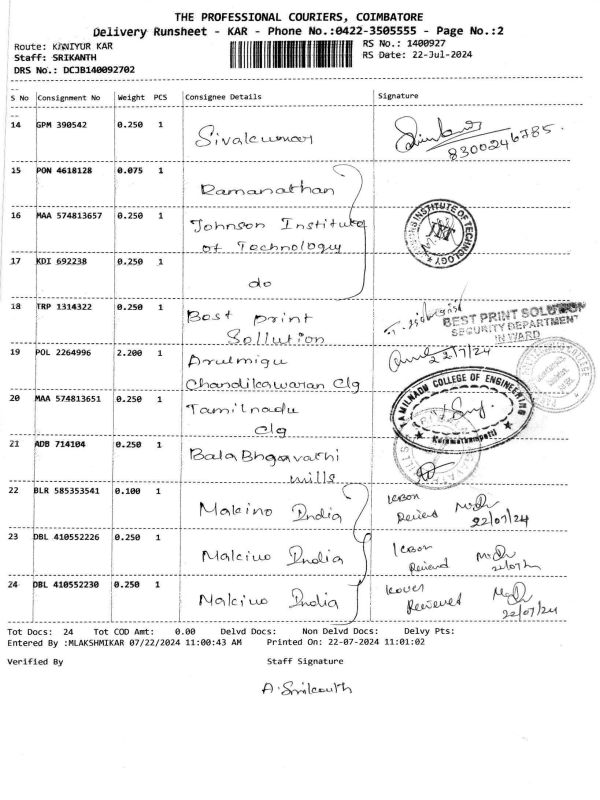 THE PROFESSIONAL COURIERS, COIMBATORE
Delivery Runsheet - KAR - Phone No.:0422-3505555 - Page No.:2
Route: KANIYUR KAR
RS No.: 1400927
Staff: SRIKANTH
RS Date: 22-Jul-2024
DRS No.: DCJB140092702
S No Consignment No Weight PCS Consignee Details Signature
14 GPM 390542 0.250 1 Sivakumar
8300246785.
15 PON 4618128 0.075 1 Ramanathan
16 MAA 574813657 0.250 1 Johnson Institute
of Technology
INSTITUTE OF TECHNOLOGY
JIT
17 KDI 692238 0.250 1 do
18 TRP 1314322 0.250 1 Best print
Sollution
BEST PRINT SOLUTION
SECURITY DEPARTMENT
IN WARD
19 POL 2264996 2.200 1 Arulmigu
Chandikawaran Clg
22/7/24
20 MAA 574813651 0.250 1 Tamilnadu
Clg
TAMILNADU COLLEGE OF ENGINEERING
Karumathampatti
21 ADB 714104 0.250 1 Bala Bhgavathi
mills
22 BLR 585353541 0.100 1 Makino India
22/07/24
23 DBL 410552226 0.250 1 Makino India
24 DBL 410552230 0.250 1 Makino India
1 cover
Received
22/07/24
Tot Docs: 24 Tot COD Amt: 0.00 Delvd Docs: Non Delvd Docs: Delvy Pts:
Entered By :MLAKSHMIKAR 07/22/2024 11:00:43 AM Printed On: 22-07-2024 11:01:02
Verified By Staff Signature
A. Srikanth